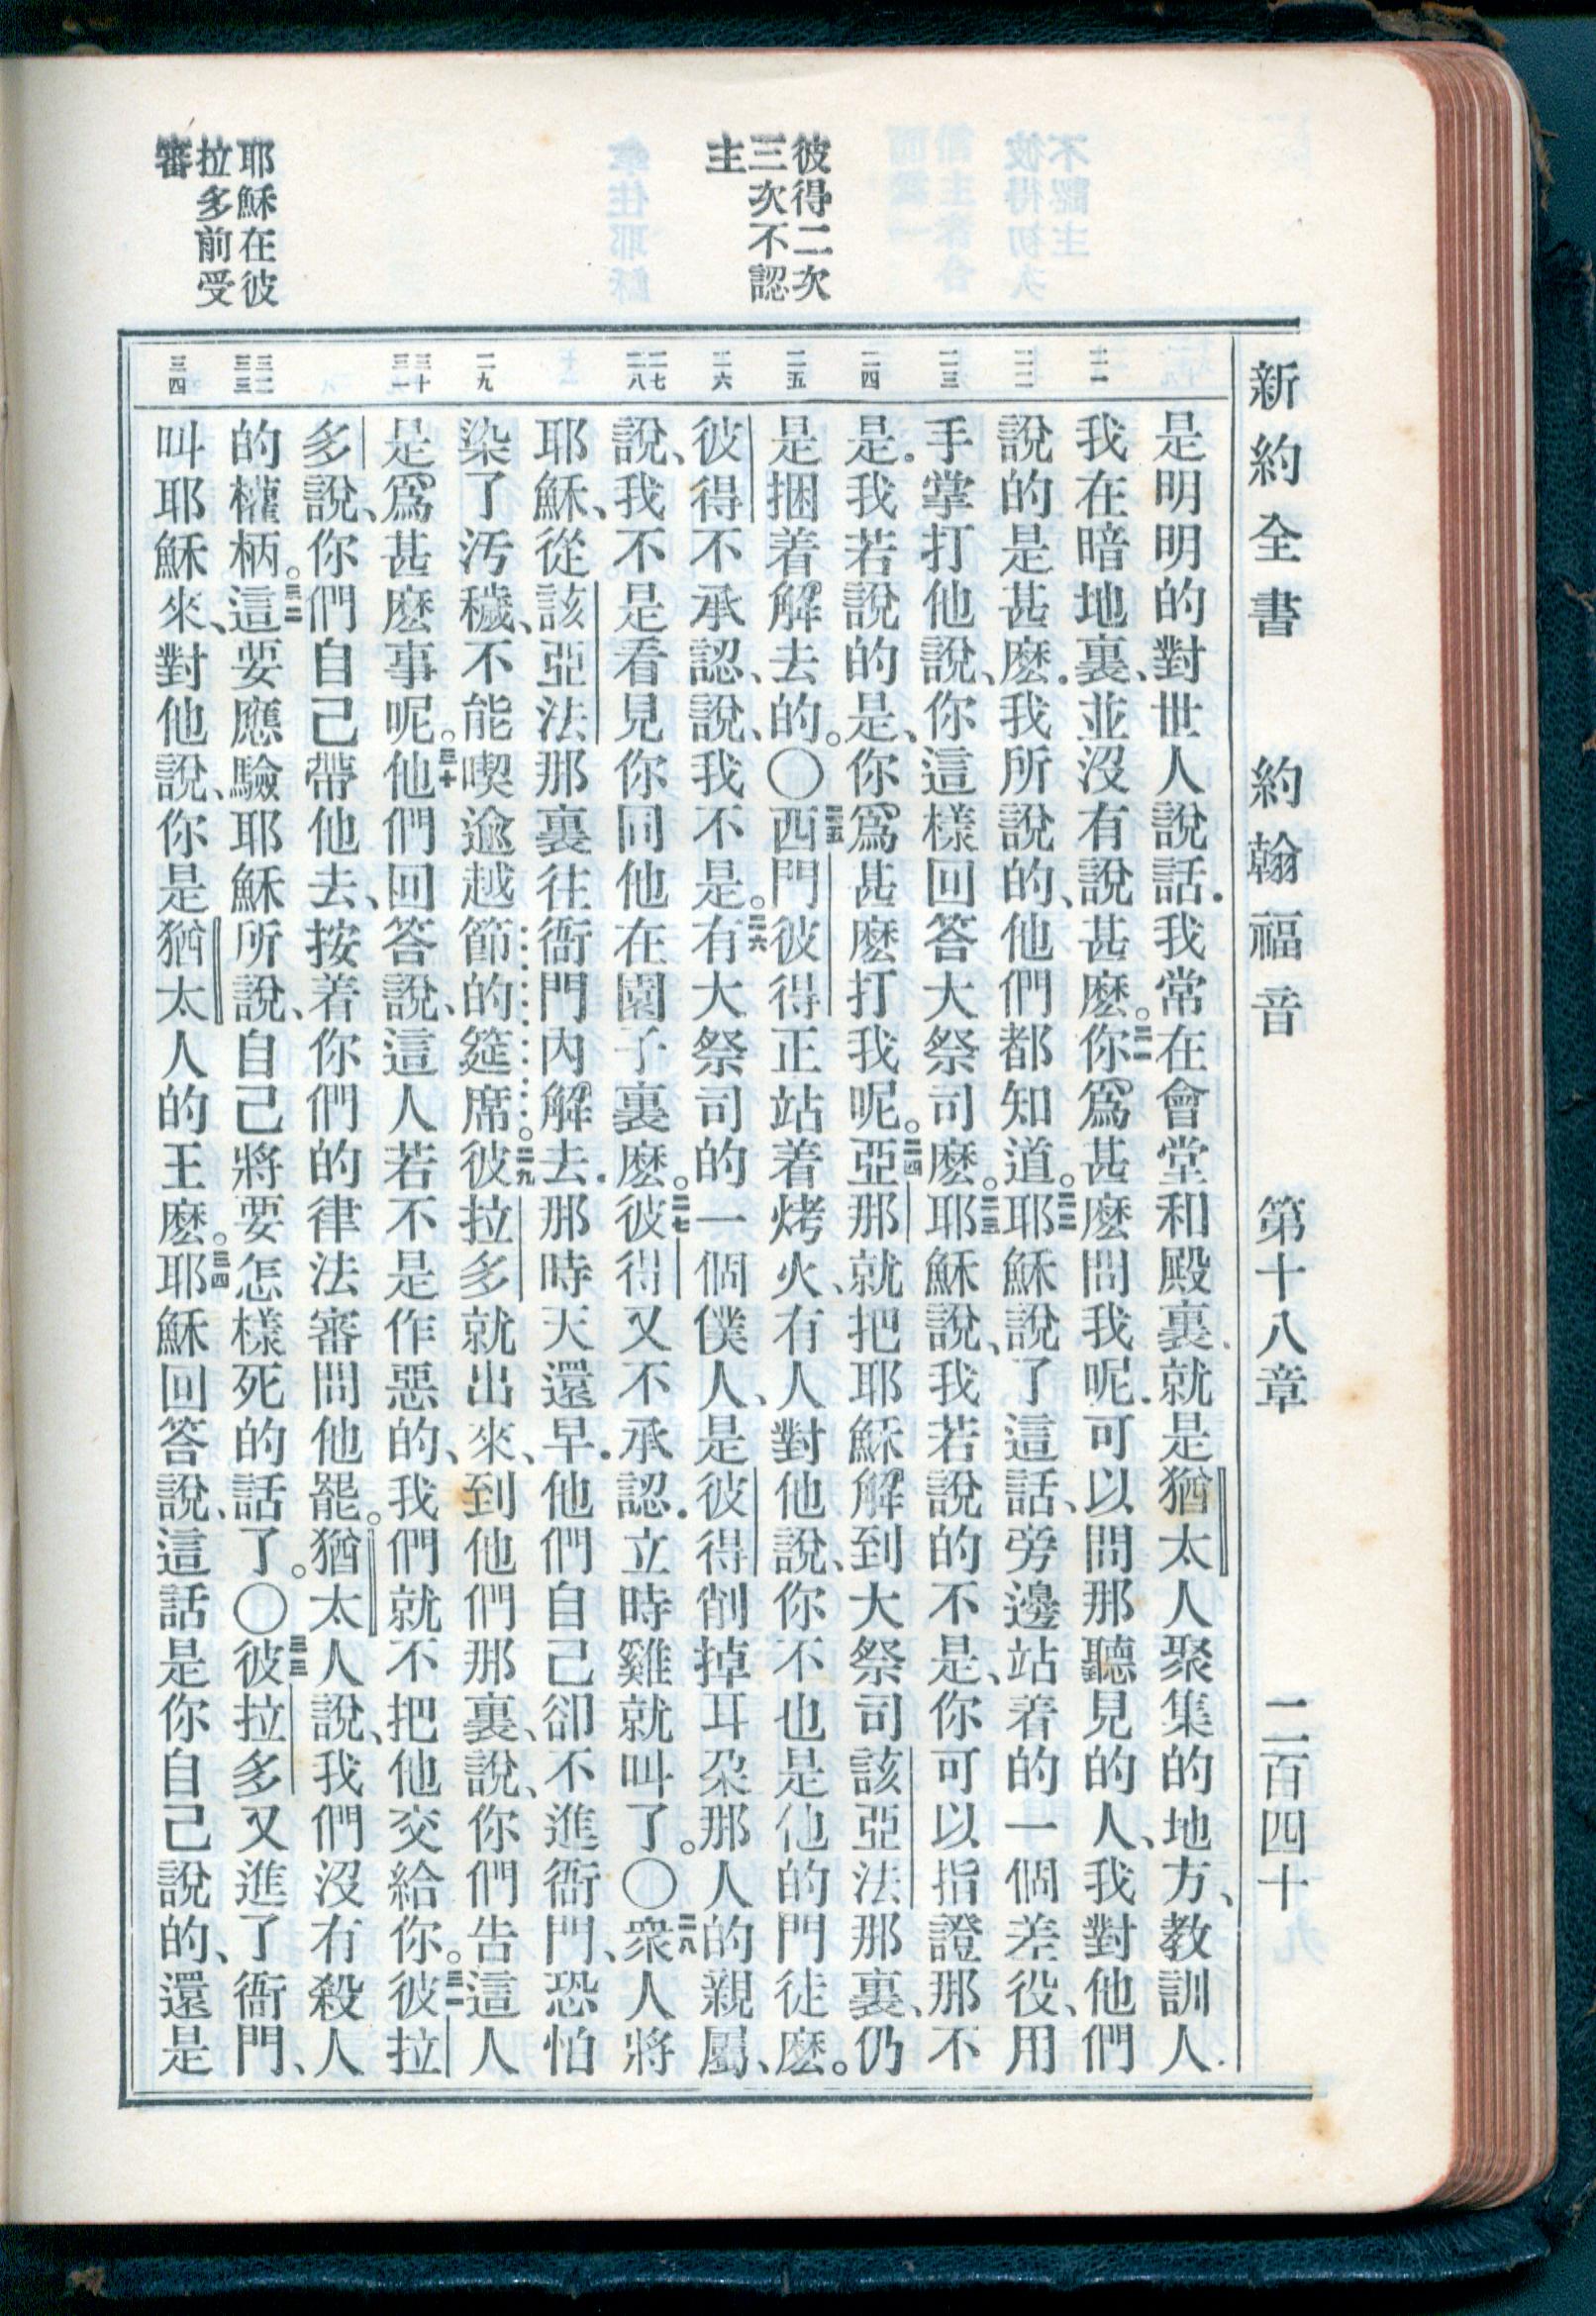 新約全書 約翰福音 第十八章 二百四十
彼得二次
三次不認
主
耶穌在彼
拉多前受
審
二一
二二
二三
二四
二五
二六
二七
二八
二九
三十
三一
三二
三三
三四
是明明的對世人說話．我常在會堂和殿裏、就是猶太人聚集的地方、教訓人．
我在暗地裏、並沒有說甚麽。二一你爲甚麽問我呢．可以問那聽見的人、我對他們
說的是甚麽．我所說的、他們都知道。二二耶穌說了這話、旁邊站着的一個差役、用
手掌打他說、你這樣回答大祭司麽。二三耶穌說、我若說的不是、你可以指證那不
是．我若說的是、你爲甚麽打我呢。二四亞那就把耶穌解到大祭司該亞法那裏、仍
是捆着解去的。〇二五西門彼得正站着烤火、有人對他說、你不也是他的門徒麽。
彼得不承認、說、我不是。二六有大祭司的一個僕人、是彼得削掉耳朵那人的親屬、
說、我不是看見你同他在園子裏麽。二七彼得又不承認．立時雞就叫了。〇二八衆人將
耶穌、從該亞法那裏往衙門內解去．那時天還早．他們自己卻不進衙門、恐怕
染了汚穢、不能喫逾越節的筵席。二九彼拉多就出來、到他們那裏、說、你們告這人
是爲甚麽事呢。三十他們回答說、這人若不是作惡的、我們就不把他交給你。三一彼拉
多說、你們自己帶他去、按着你們的律法審問他罷。猶太人說、我們沒有殺人
的權柄。三二這要應驗耶穌所說、自己將要怎樣死的話了。〇三三彼拉多又進了衙門、
叫耶穌來、對他說、你是猶太人的王麽。三四耶穌回答說、這話是你自己說的、還是